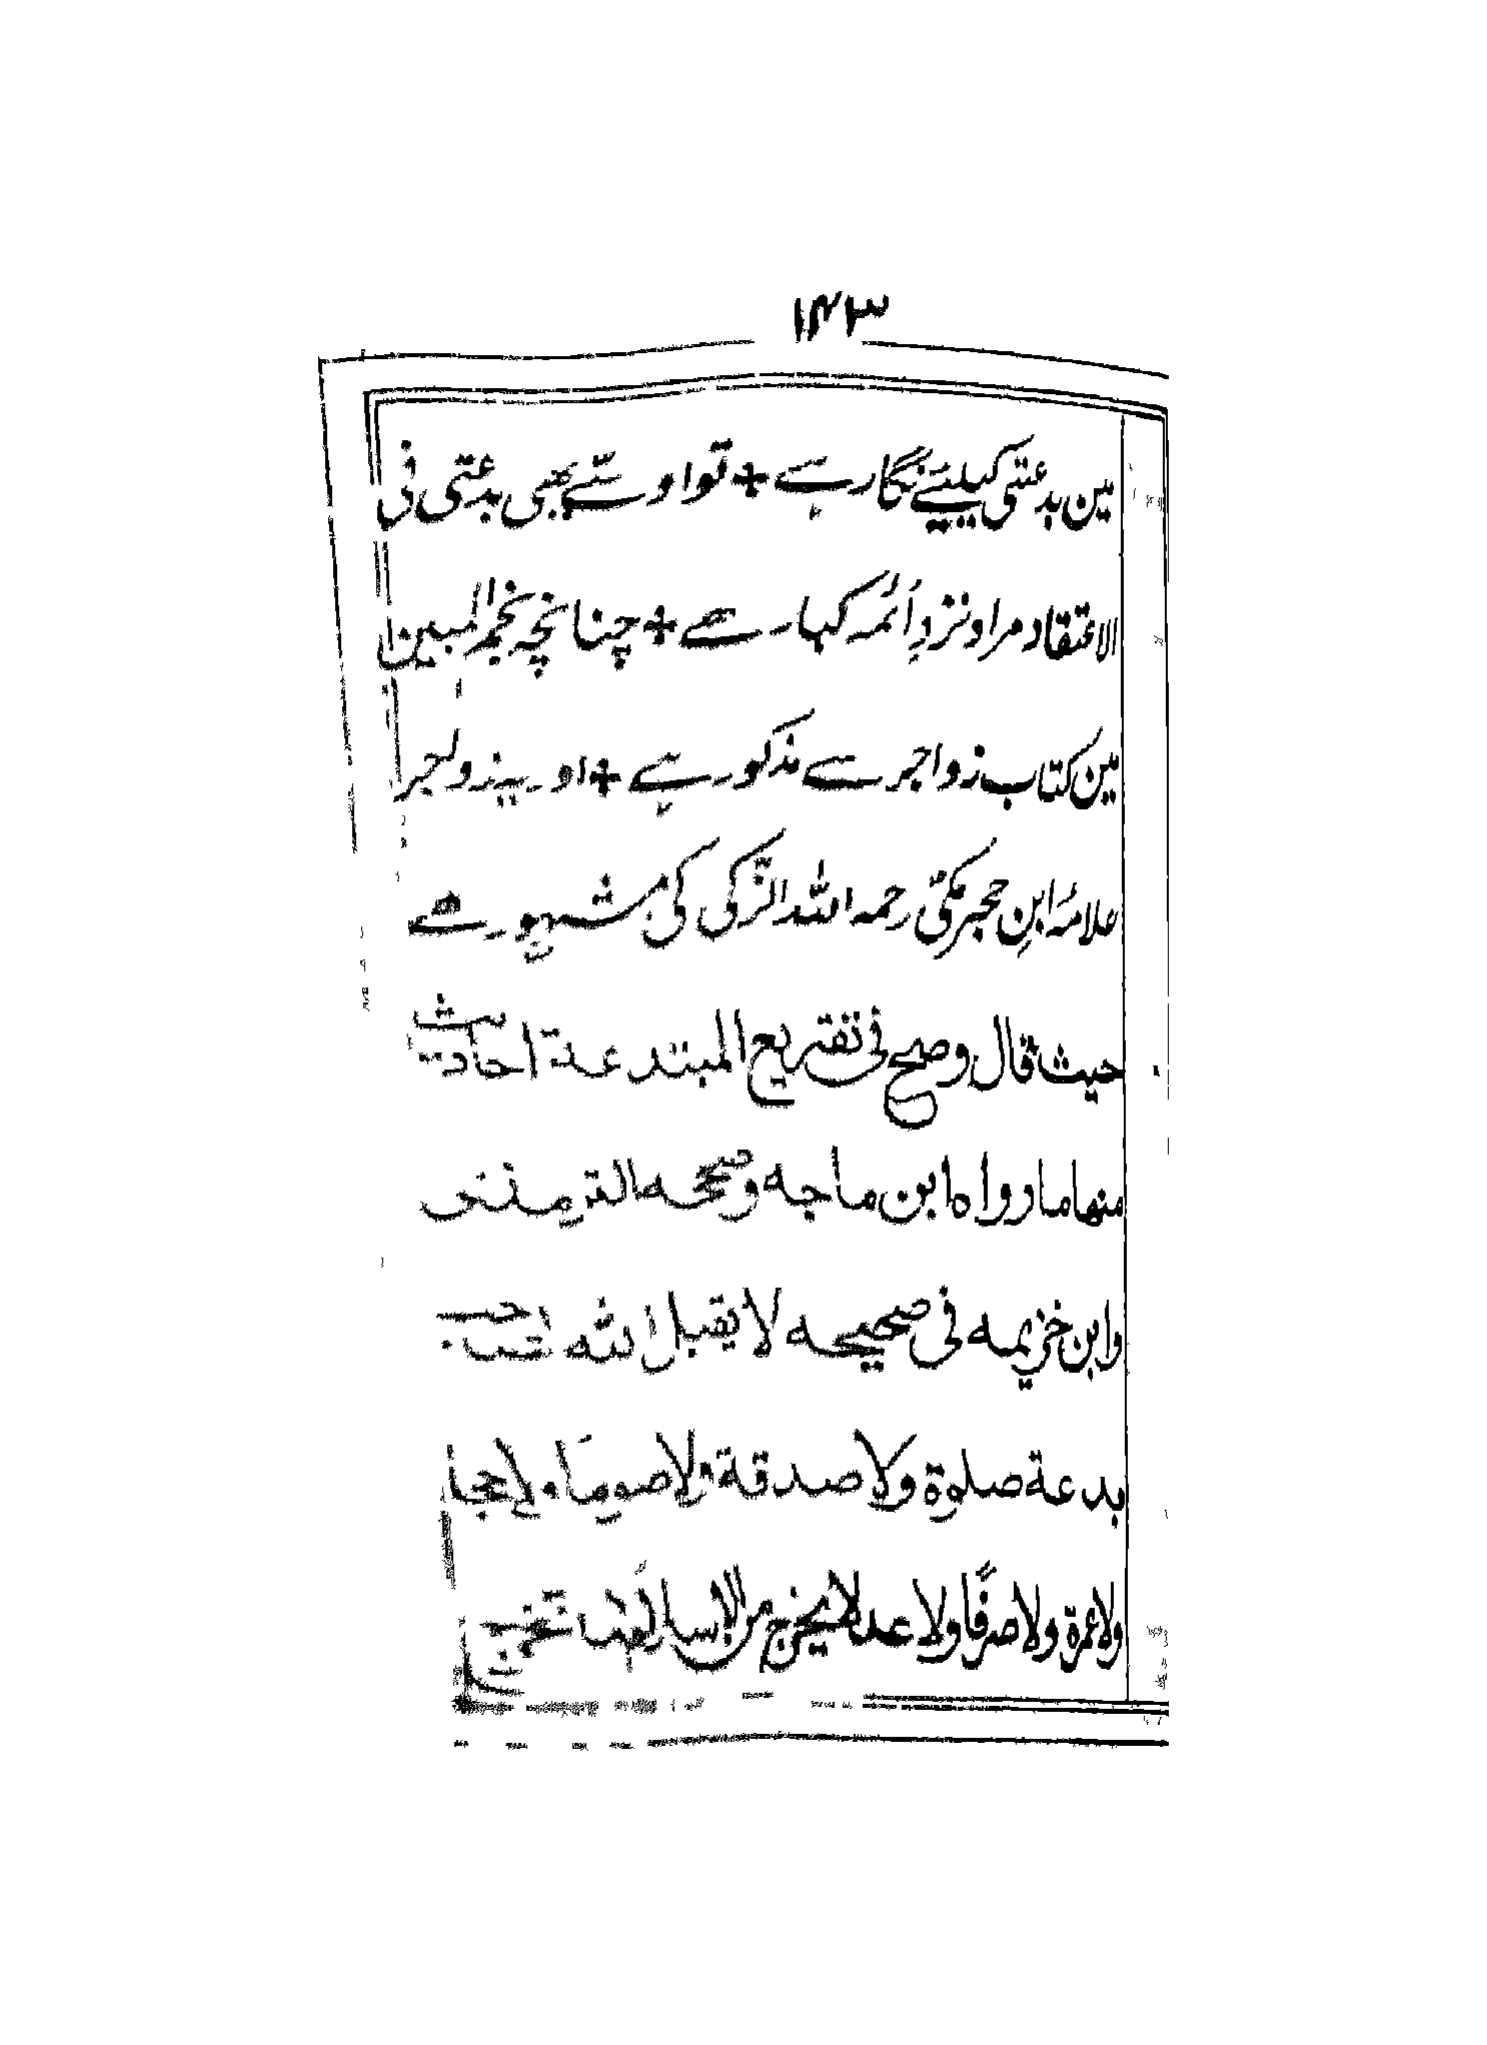 ۱۴۳
مین بدعتی کیلیے نگار ہے + تو اوسے بھی بدعتی فی
الاعتقاد مراد نزدِ ائمہ کبار ھے + چنانچہ نجم المبین
مین کتاب زواجر سے مذکور ہے + اور یہ زواجر
علامۂ ابنِ حجر مکّی رحمہ اللہ الزّکی کی مشہور ھے
حیث قال وصح فی تقریع المبتدعة احادیث
منها ما رواه ابن ماجه وصححه الترمذی
وابن خزیمه فی صحیحه لا یقبل الله لصاحب
بدعة صلوة ولا صدقة ولا صوما ولا حجا
ولا عمرة ولا صرفًا ولا عدلا یخرج من الاسلام كما تخرج